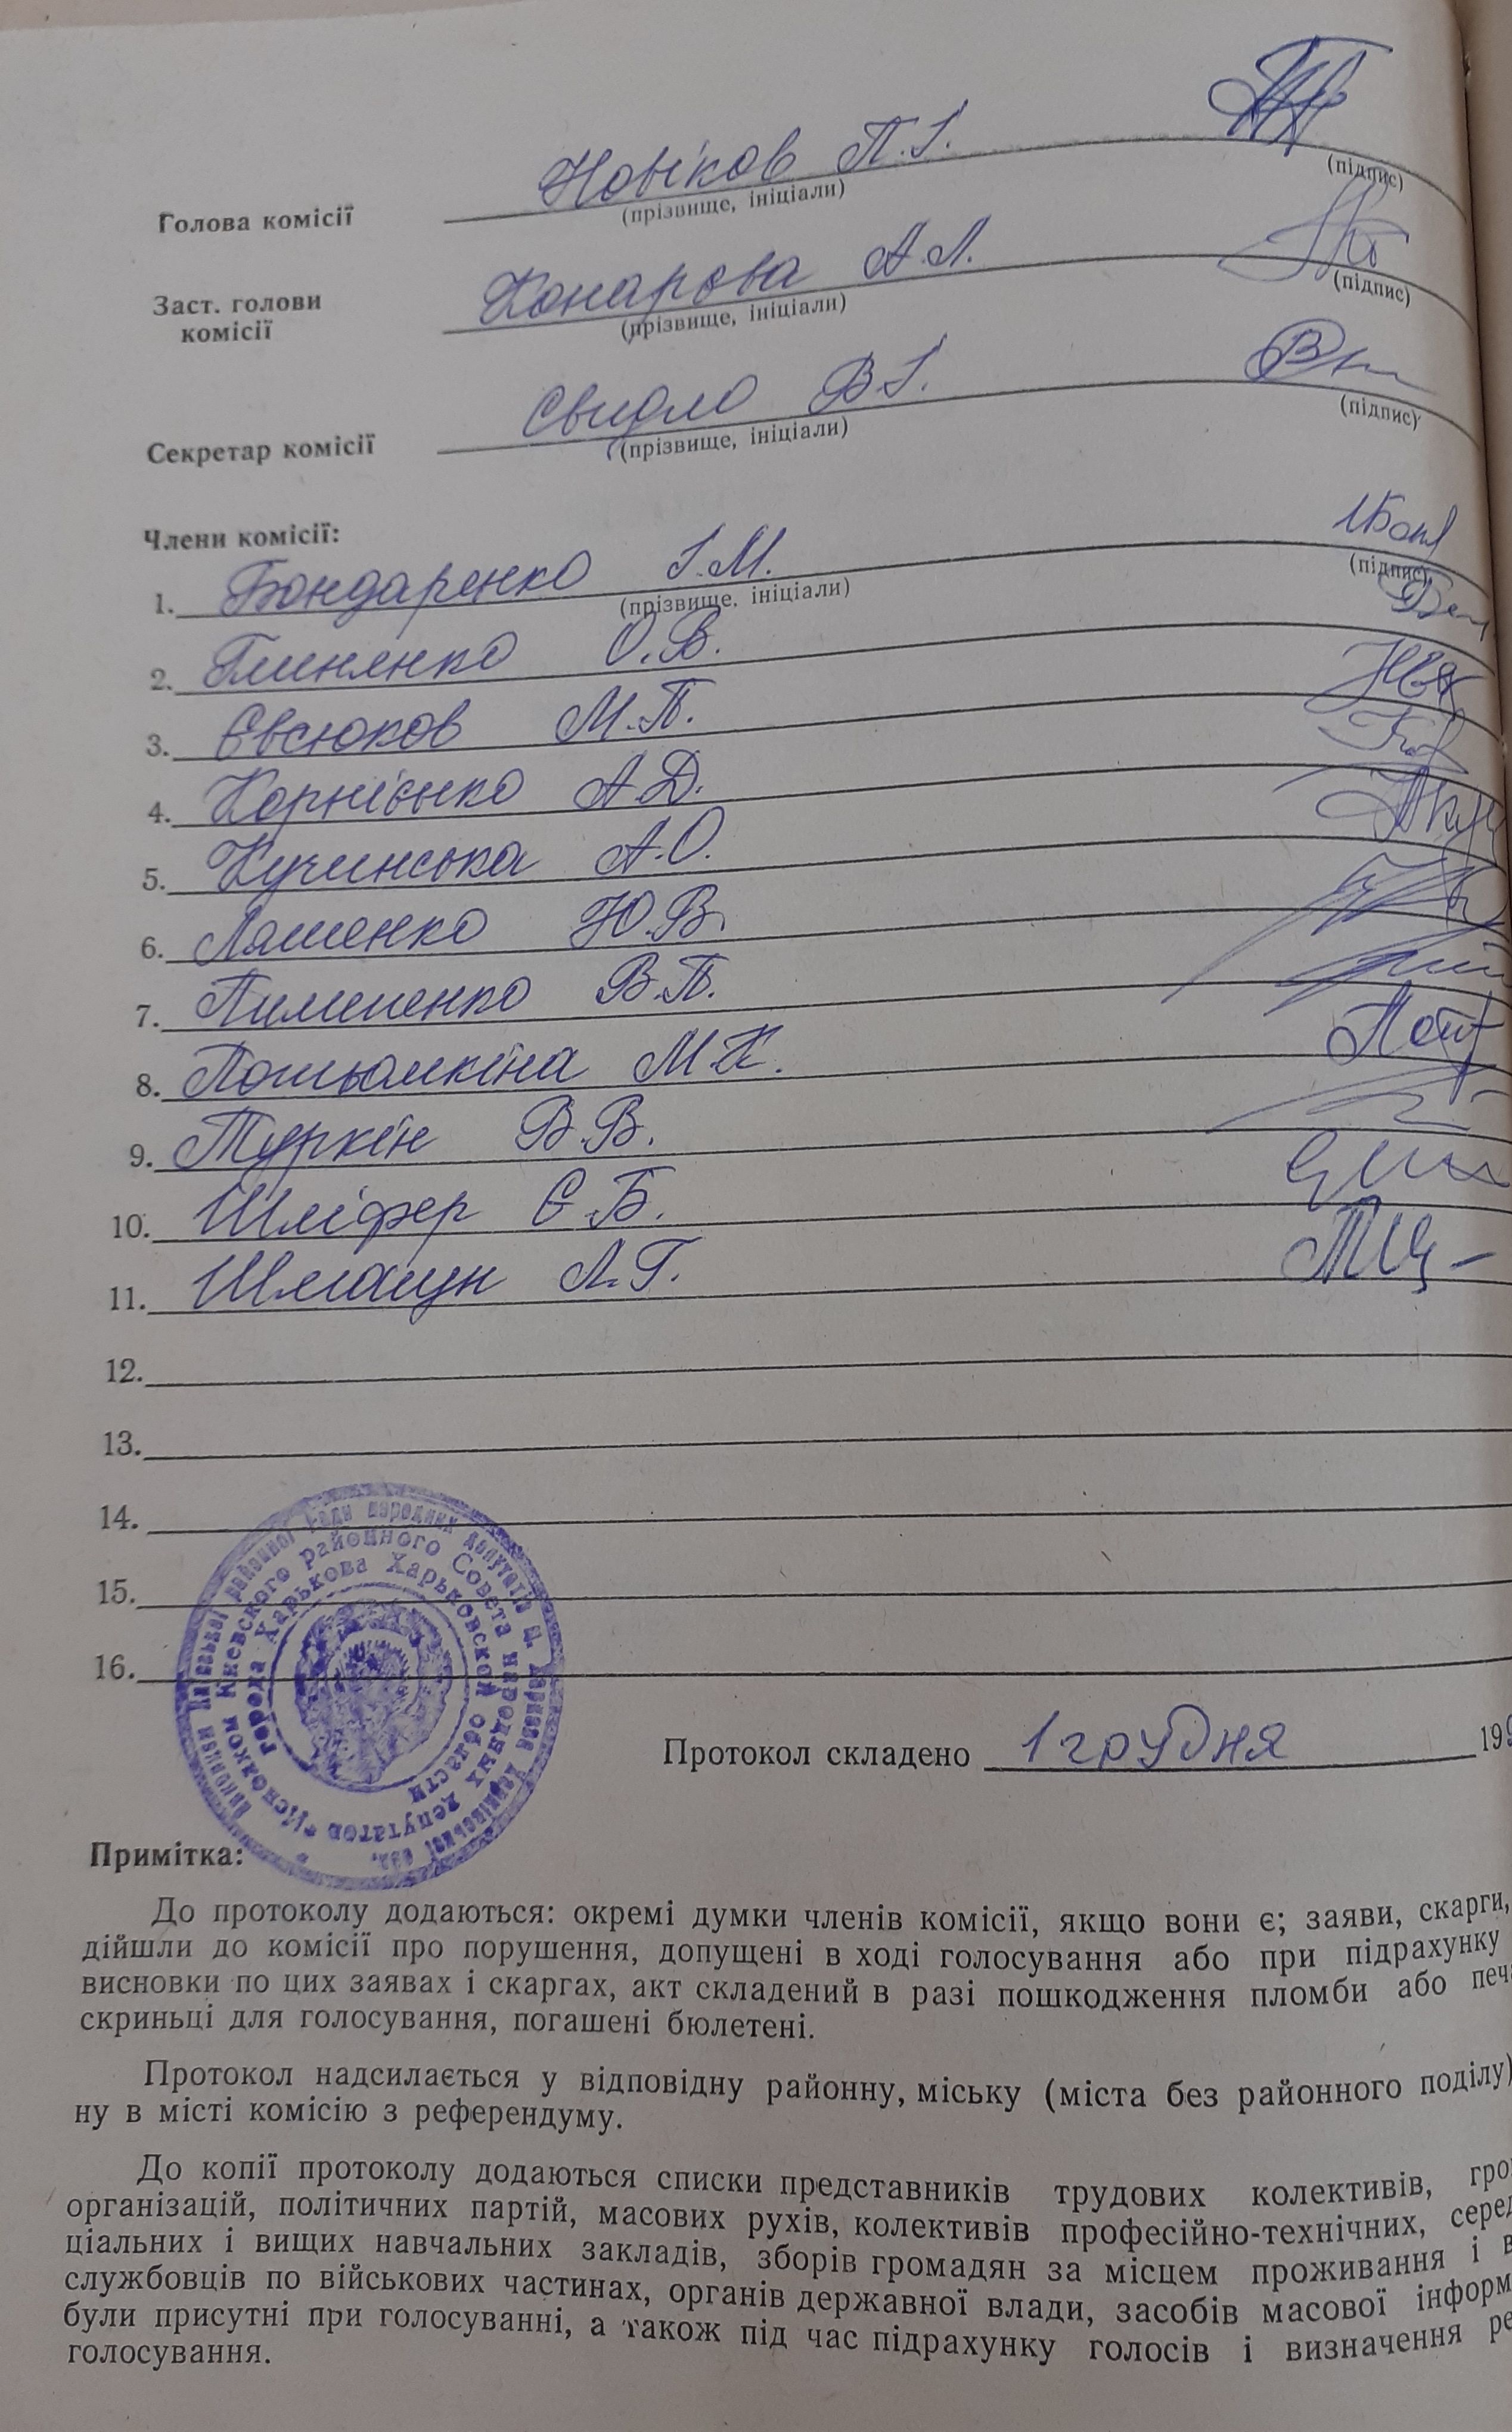 Голова комісії Новіков П.І.
(прізвище, ініціали) (підпис)
Заст. голови
комісії Конарєва А.Л.
(прізвище, ініціали) (підпис)
Секретар комісії Свидло В.І.
(прізвище, ініціали) (підпис)
Члени комісії:
1. Бондаренко І.М.
(прізвище, ініціали) (підпис)
2. О.В.
3. Євсюков М.П.
4. Корнієнко А.Д.
5. Кучинська А.О.
6. Ляшенко Ю.В.
7. Пимененко В.П.
8. Потьомкіна М.К.
9. Туркін В.В.
10. Шліфер Є.Б.
11. Л.Г.
12.
13.
14.
15.
16.
районної Ради народних депутатів м. Харкова Харківської обл.
Исполком Киевского районного Совета народных депутатов
города Харькова Харьковской области
Протокол складено 1 грудня 199
Примітка:
До протоколу додаються: окремі думки членів комісії, якщо вони є; заяви, скарги,
дійшли до комісії про порушення, допущені в ході голосування або при підрахунку
висновки по цих заявах і скаргах, акт складений в разі пошкодження пломби або печа
скриньці для голосування, погашені бюлетені.
Протокол надсилається у відповідну районну, міську (міста без районного поділу)
ну в місті комісію з референдуму.
До копії протоколу додаються списки представників трудових колективів, гро
організацій, політичних партій, масових рухів, колективів професійно-технічних, серед
ціальних і вищих навчальних закладів, зборів громадян за місцем проживання і в
службовців по військових частинах, органів державної влади, засобів масової інформ
були присутні при голосуванні, а також під час підрахунку голосів і визначення ре
голосування.